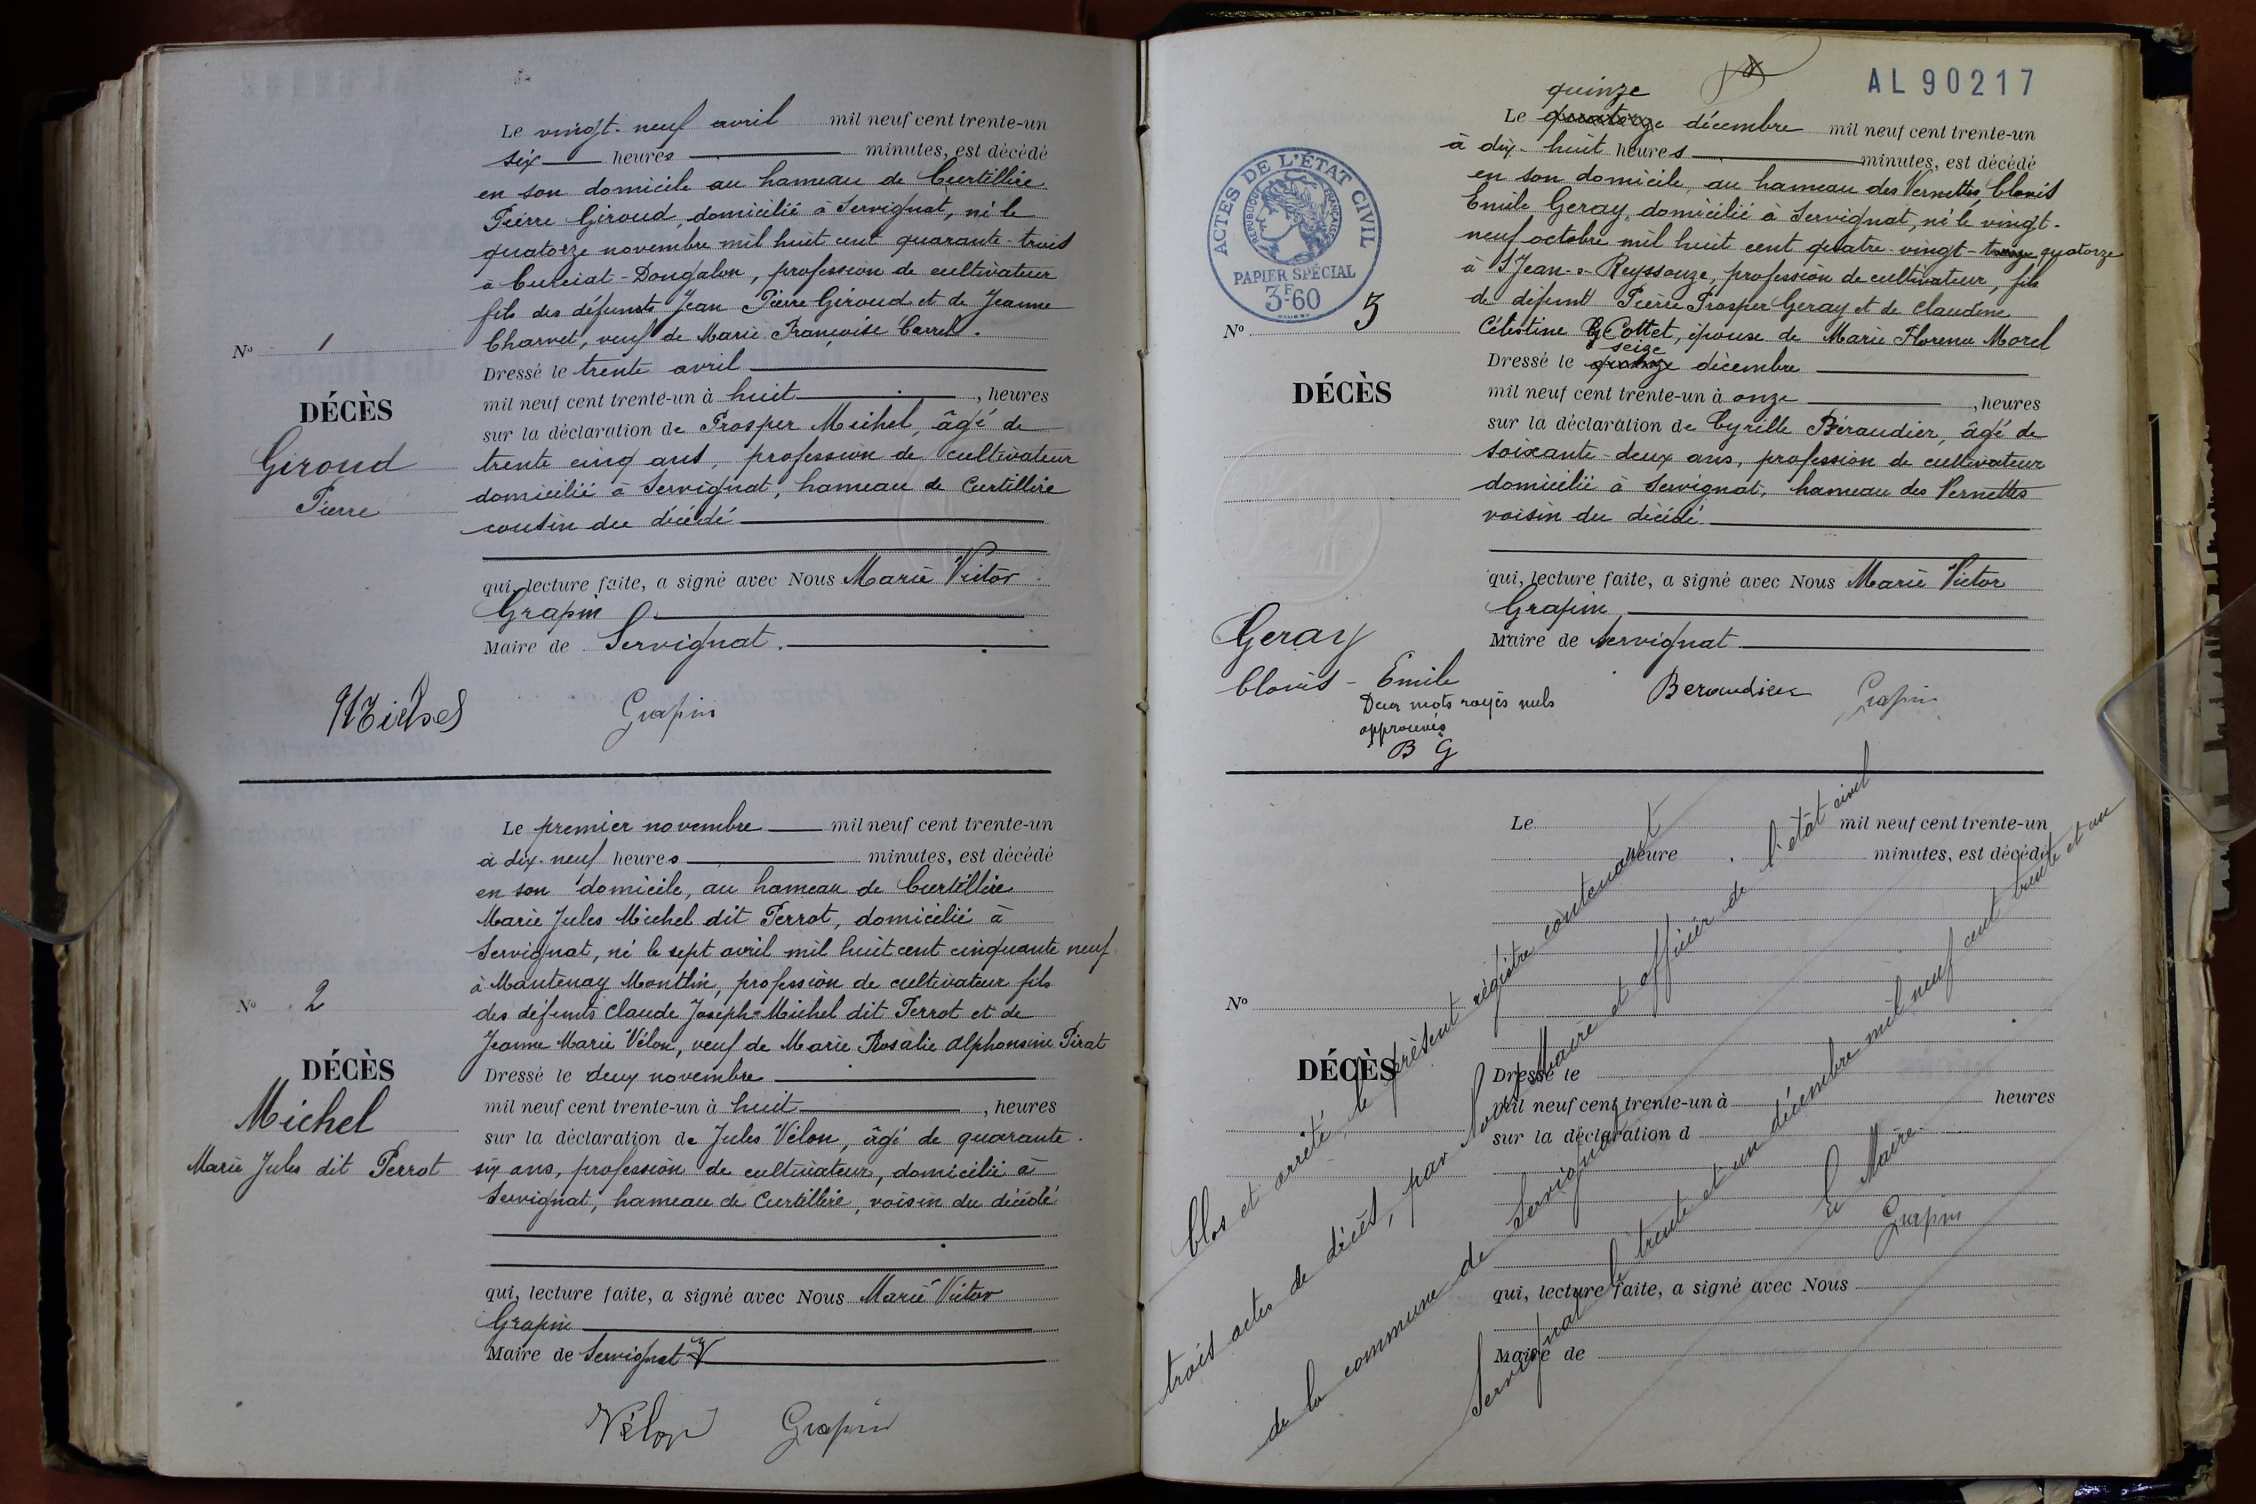 Le vingt-neuf avril mil neuf cent trente-un
six heures minutes, est décédé
en son domicile au hameau de Curtillère
Pierre Giroud, domicilié à Servignat, né le
quatorze novembre mil huit cent quarante-trois
à Curciat-Dongalon, profession de cultivateur
fils des défunts Jean Pierre Giroud et de Jeanne
Charvet, veuf de Marie Françoise Carrel.
Dressé le trente avril
mil neuf cent trente-un à huit, heures
sur la déclaration de Prosper Michel, âgé de
trente cinq ans, profession de cultivateur
domicilié à Servignat, hameau de Curtillère
cousin du décédé
qui, lecture faite, a signé avec Nous Marie Victor
Grapin
Maire de Servignat.
No 1
DÉCÈS
Giroud
Pierre
Michel Grapin
Le premier novembre mil neuf cent trente-un
à dix-neuf heures minutes, est décédé
en son domicile, au hameau de Curtillère
Marie Jules Michel dit Perrot, domicilié à
Servignat, né le sept avril mil huit cent cinquante neuf
à Mantenay Montlin, profession de cultivateur fils
des défunts Claude Joseph Michel dit Perrot et de
Jeanne Marie Vélon, veuf de Marie Rosalie Alphonsine Pirat
Dressé le deux novembre
mil neuf cent trente-un à huit, heures
sur la déclaration de Jules Vélon, âgé de quarante-
six ans, profession de cultivateur, domicilié à
Servignat, hameau de Curtillère, voisin du décédé
qui, lecture faite, a signé avec Nous Marie Victor
Grapin
Maire de Servignat
No 2
DÉCÈS
Michel
Marie Jules dit Perrot
Vélon Grapin
AL 90217
quinze
Le quatorze décembre mil neuf cent trente-un
à dix-huit heures minutes, est décédé
en son domicile, au hameau des Vernettes, Clovis
Emile Geray, domicilié à Servignat, né le vingt-
neuf octobre mil huit cent quatre-vingt-treize quatorze
à St Jean-s-Reyssouze, profession de cultivateur, fils
de défunt Pierre Prosper Geray et de Claudine
Célestine Cottet, époux de Marie Florence Morel
seize
Dressé le quinze décembre
mil neuf cent trente-un à onze, heures
sur la déclaration de Cyrille Béraudier, âgé de
soixante-deux ans, profession de cultivateur
domicilié à Servignat, hameau des Vernettes
voisin du décédé
qui, lecture faite, a signé avec Nous Marie Victor
Grapin
Maire de Servignat
ACTES DE L'ÉTAT CIVIL
RÉPUBLIQUE FRANÇAISE
PAPIER SPÉCIAL
3F60
No 3
DÉCÈS
Geray
Clovis-Emile
Deux mots rayés nuls
approuvés
B G
Beraudier Grapin
Le mil neuf cent trente-un
heure minutes, est décédé
No
DÉCÈS
Dressé le
mil neuf cent trente-un à heures
sur la déclaration d
qui, lecture faite, a signé avec Nous
Maire de
Clos et arrêté, le présent registre contenant
trois actes de décès, par Nous, Maire et officier de l'état civil
de la commune de Servignat
Servignat le trente et un décembre mil neuf cent trente et un
Le Maire
Grapin